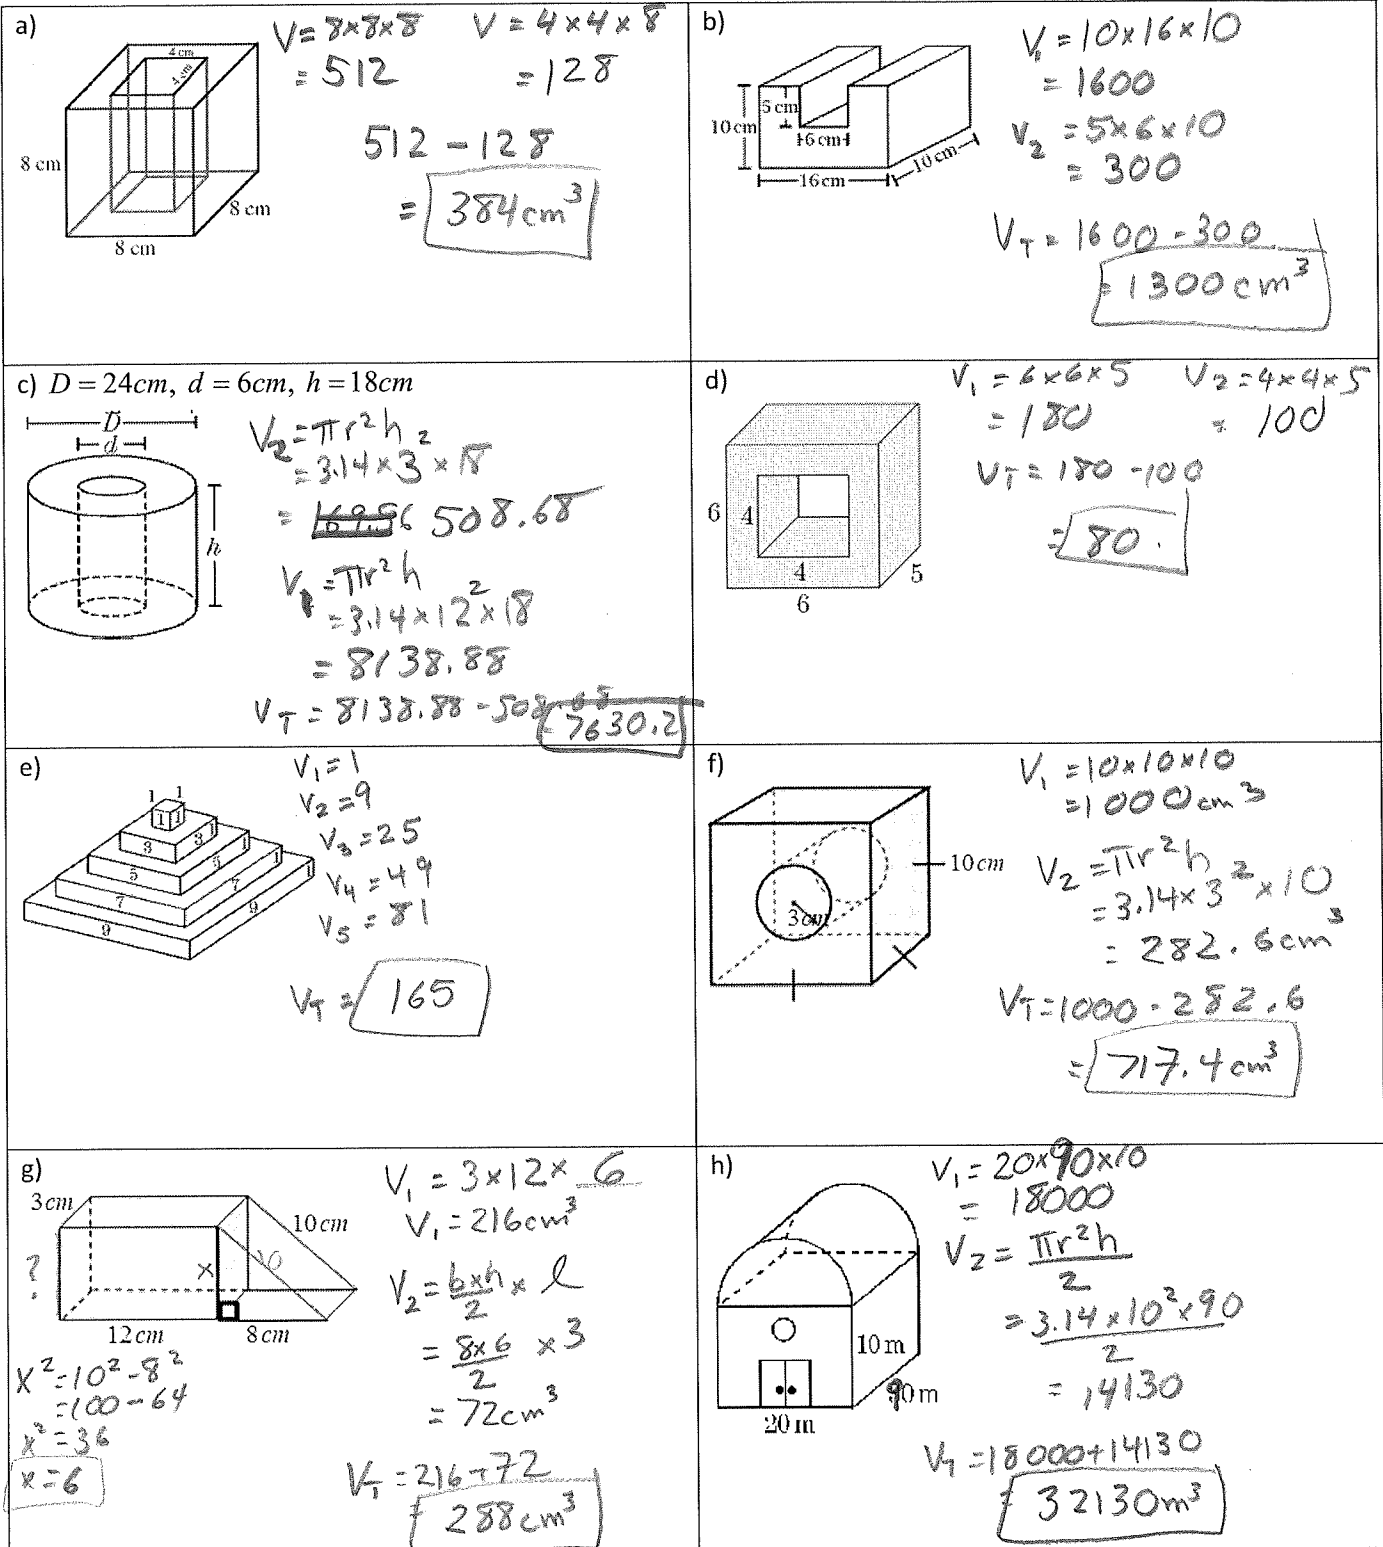 a)
V = 8×8×8
= 512
V = 4×4×8
= 128
512 - 128
= 384 cm³
4 cm
4 cm
8 cm
8 cm
8 cm
b)
V₁ = 10×16×10
= 1600
V₂ = 5×6×10
= 300
V_T = 1600 - 300
= 1300 cm³
5 cm
10 cm
6 cm
16 cm
10 cm
c) D = 24cm, d = 6cm, h = 18cm
D
d
h
V₂ = πr²h
= 3.14 × 3² × 18
= 508.68
V₁ = πr²h
= 3.14 × 12² × 18
= 8138.88
V_T = 8138.88 - 508.68
= 7630.2
d)
V₁ = 6×6×5
= 180
V₂ = 4×4×5
= 100
V_T = 180 - 100
= 80.
6
4
4
6
5
e)
1 1
1 1
3 3 1
5 5 1
7 7 1
9 9 1
V₁ = 1
V₂ = 9
V₃ = 25
V₄ = 49
V₅ = 81
V_T = 165
f)
10cm
3cm
V₁ = 10×10×10
= 1000 cm³
V₂ = πr²h
= 3.14 × 3² × 10
= 282.6 cm³
V_T = 1000 - 282.6
= 717.4 cm³
g)
3cm
10cm
?
x
10
12cm
8cm
x² = 10² - 8²
= 100 - 64
x² = 36
x = 6
V₁ = 3 × 12 × 6
V₁ = 216 cm³
V₂ = b×h/2 × l
= 8×6/2 × 3
= 72 cm³
V_T = 216 + 72
= 288 cm³
h)
10 m
90 m
20 m
V₁ = 20×90×10
= 18000
V₂ = πr²h/2
= 3.14 × 10² × 90/2
= 14130
V_T = 18000 + 14130
= 32130 m³